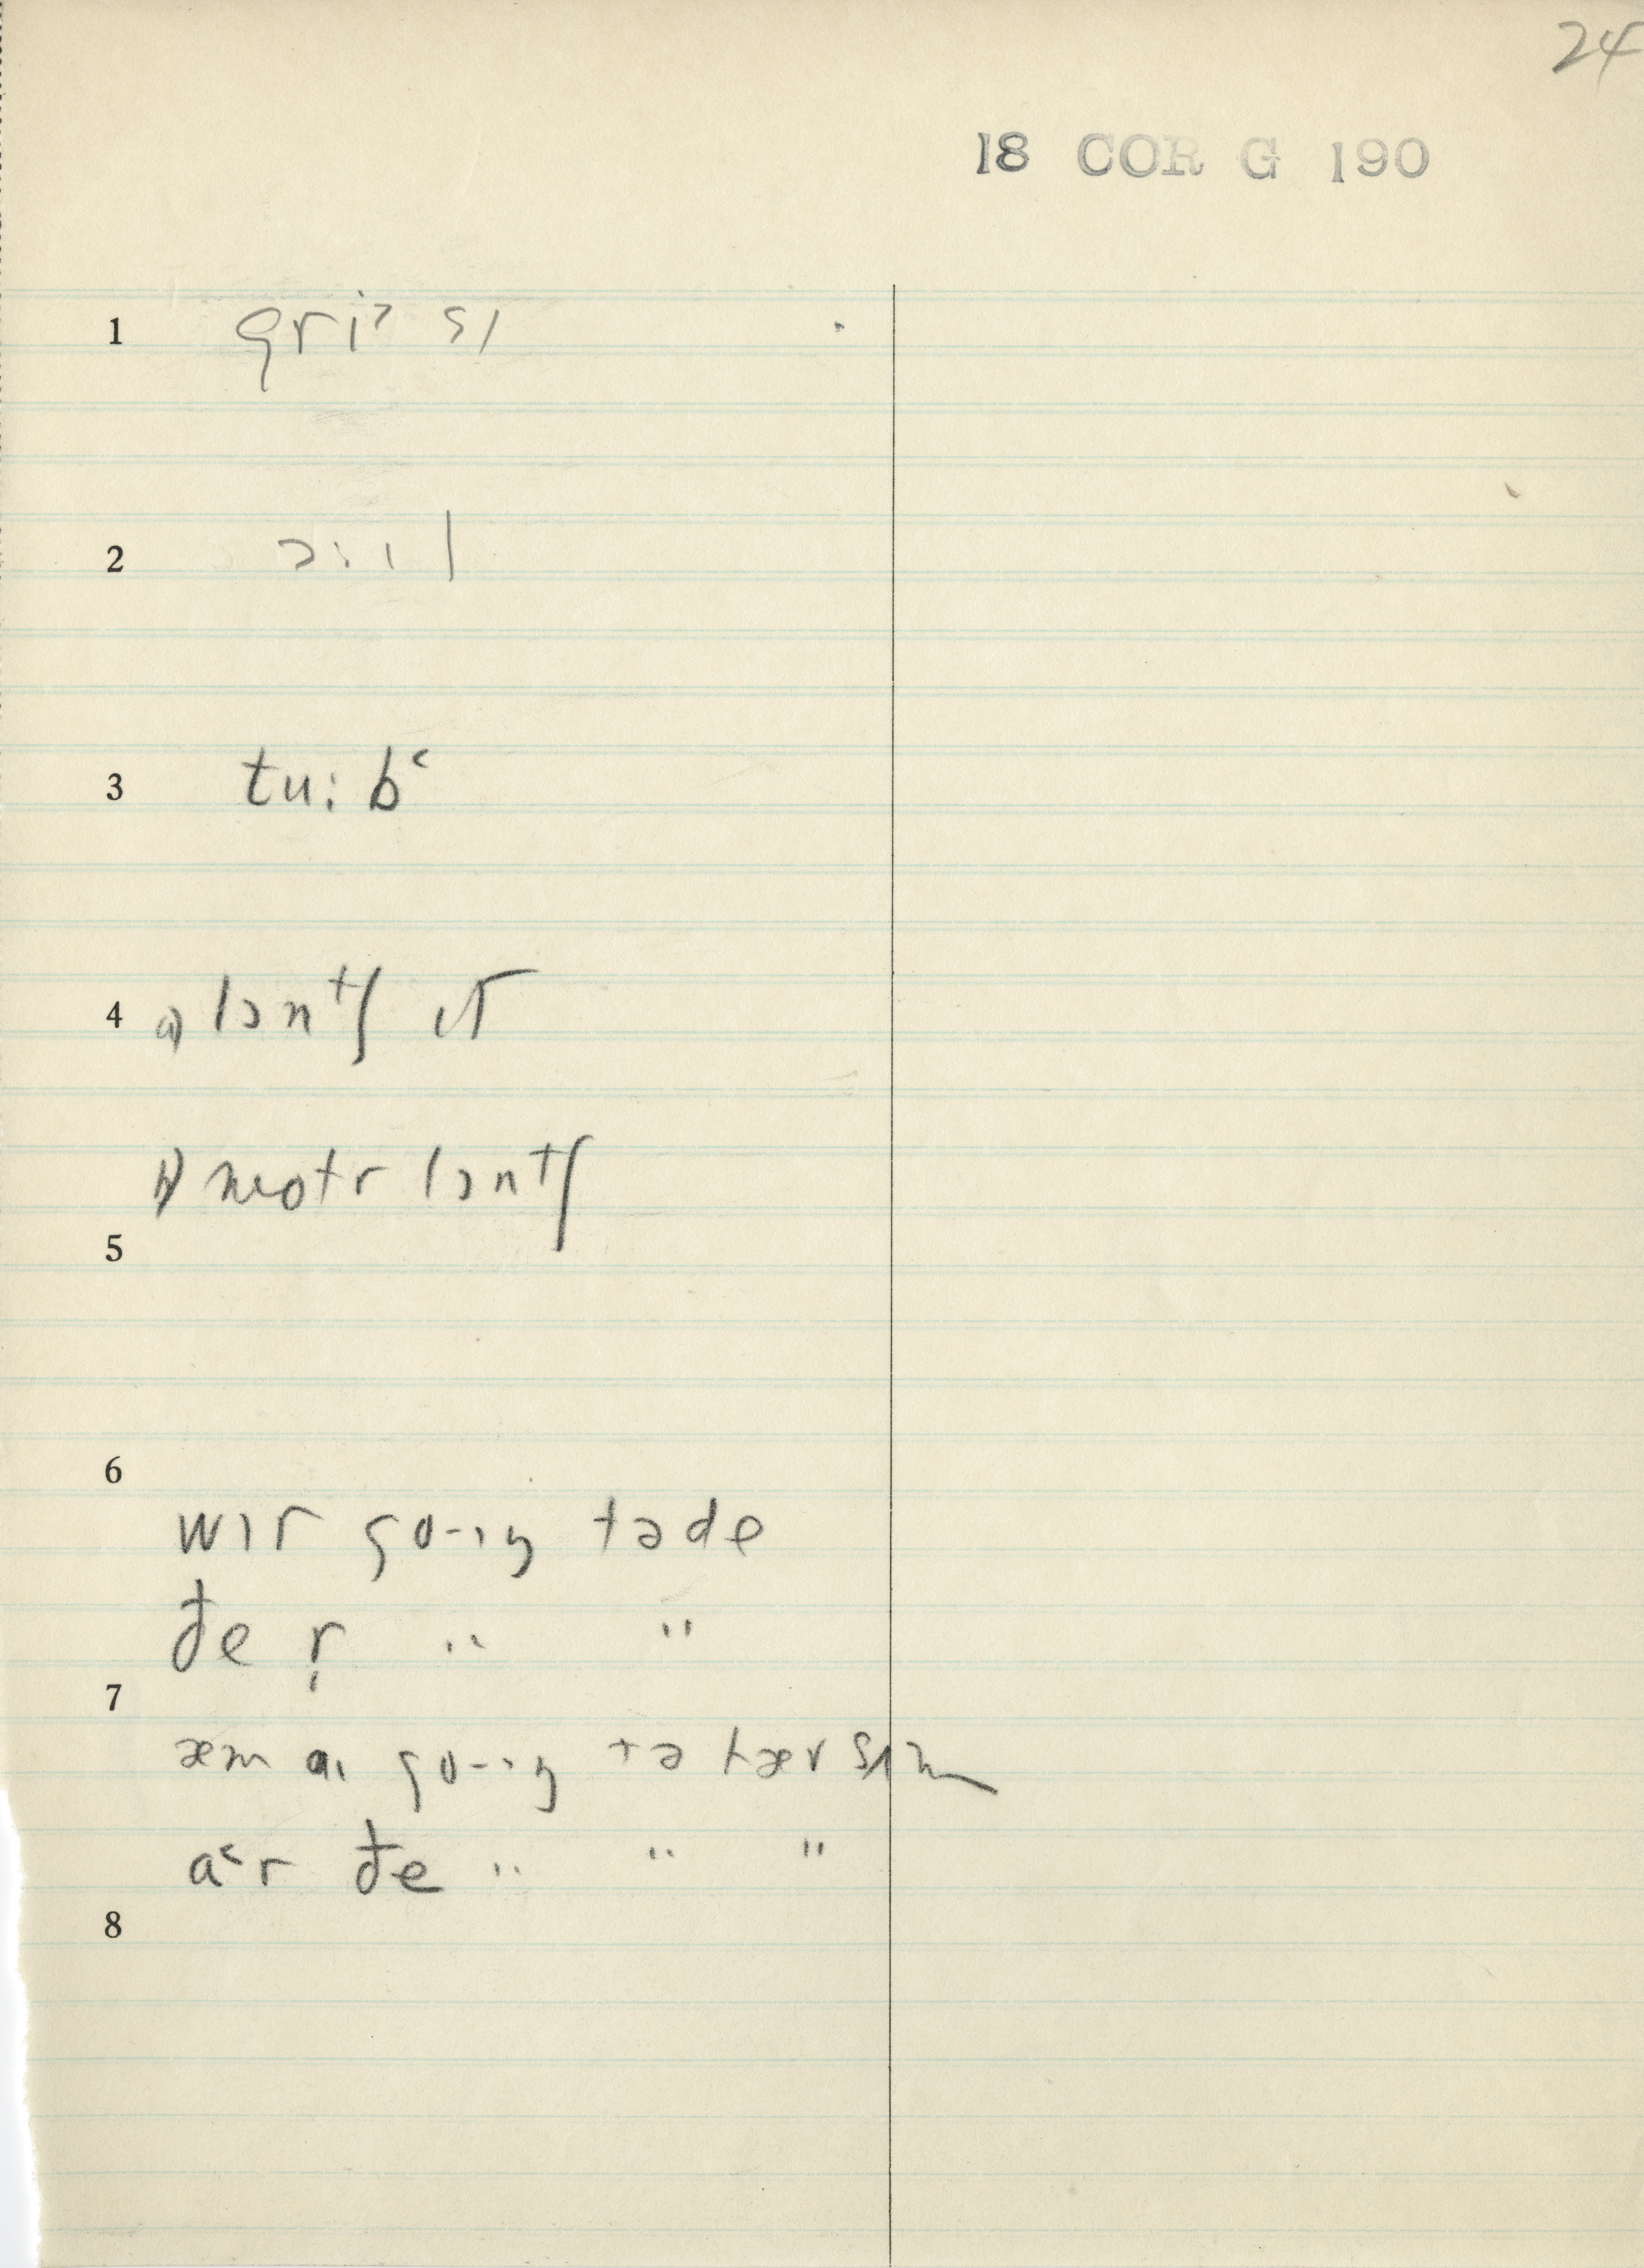 24
18 COR G 190
1 gri˃ sɪ
2 ɔ: ɪ l
3 tu: b˂
4 a) lɔntʃ ɪt
b) motr lɔntʃ
5
6
wɪr go-ɪŋ təde
đe ṛ " "
7
æm aɪ go-ɪŋ tə hæv sʌm
a˂r đe " " "
8